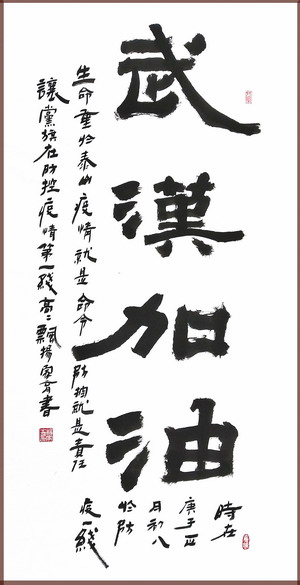 武漢加油
時在
庚子正
月初八
於防
疫一綫
生命重於泰山疫情就是命令防控就是責任
讓黨旗在防控疫情第一綫高高飄揚家育書